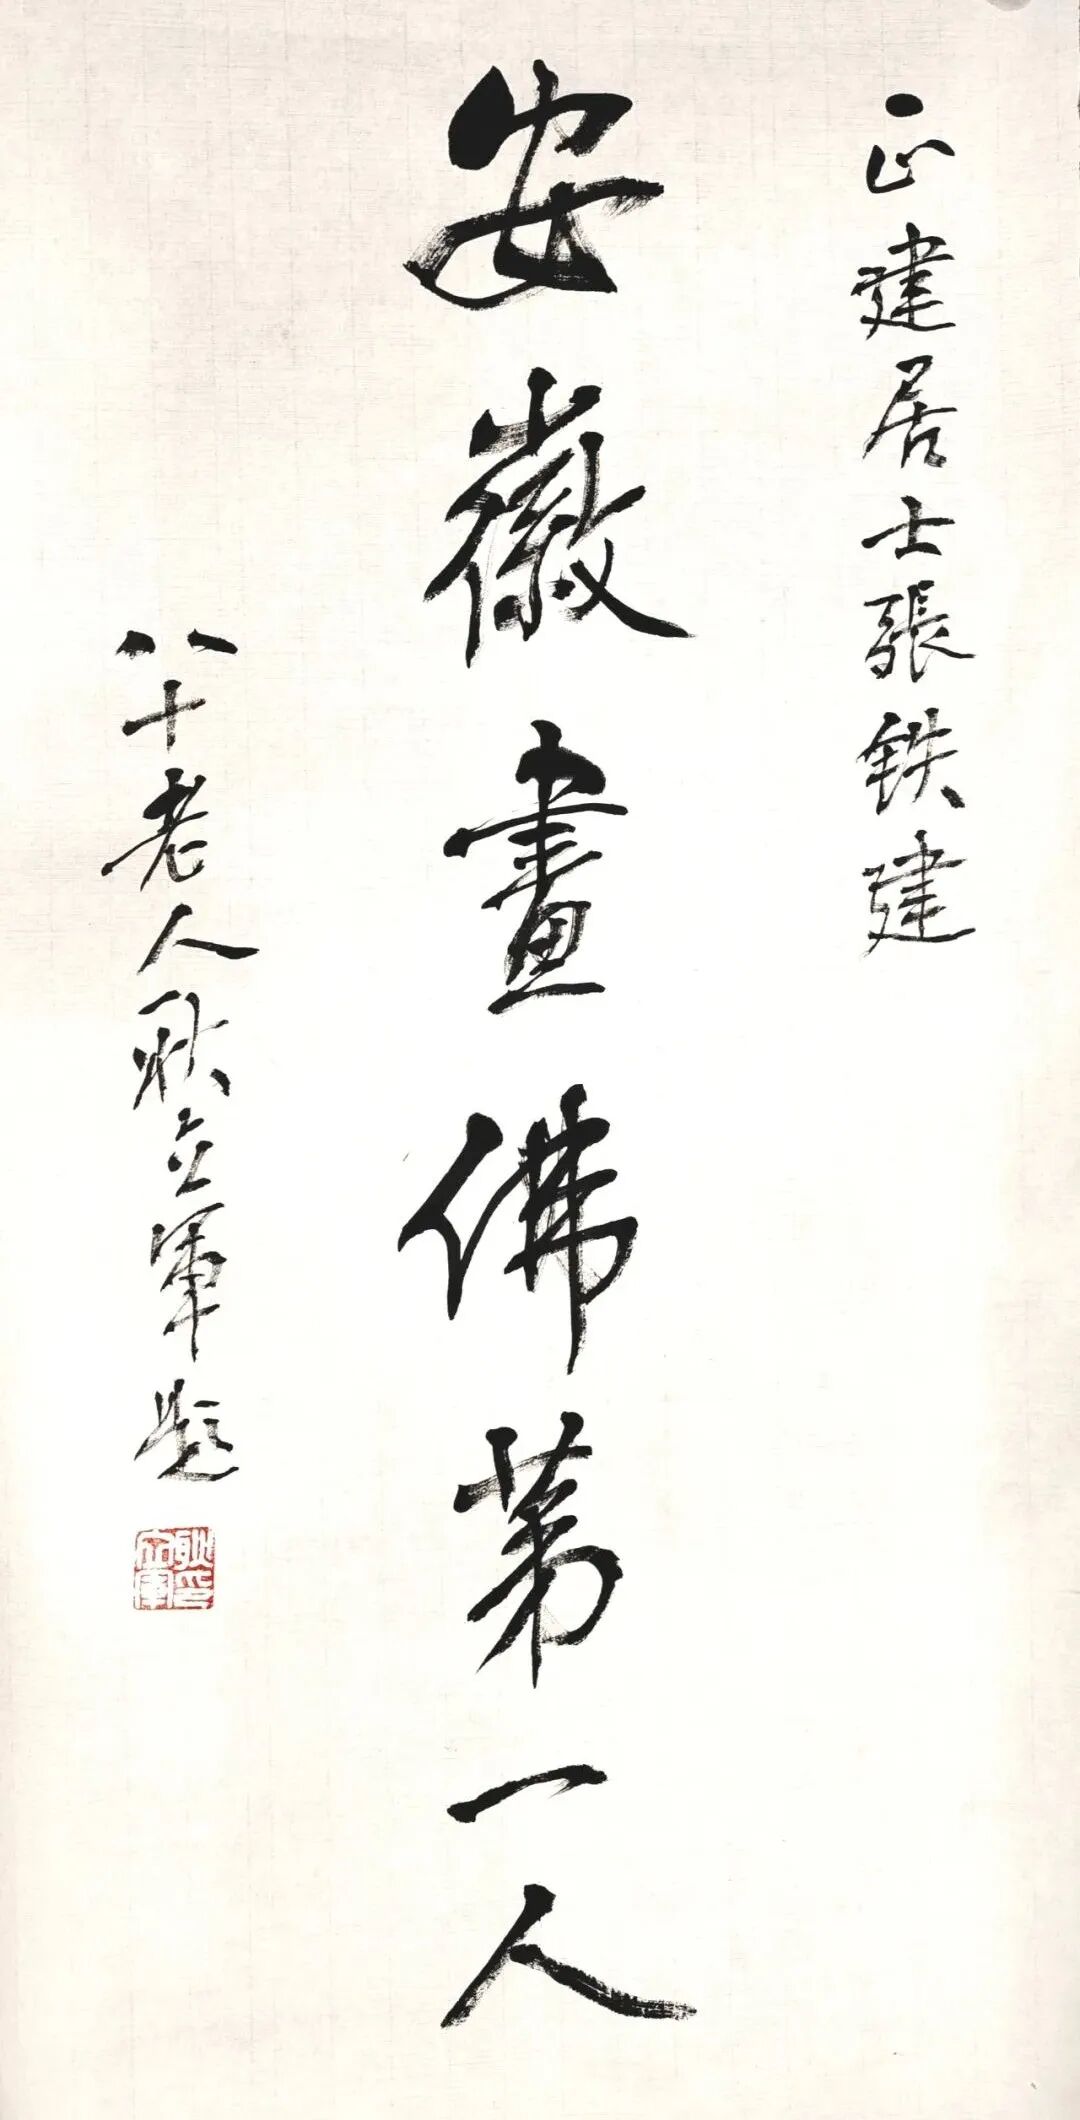 正建居士張鉄建
安徽畫佛第一人
八十老人耿立軍題
耿印立軍